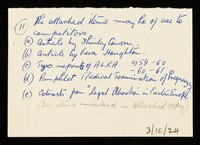 (11) The attached items may be of use to
competitors.
(a) Article by Shirley
(b) Article by Vera Houghton
(c) Two reports of ALRA 1959-60
60-61
(d) Pamphlet (Federal Termination of Pregnancy
(e) Extracts from "Legal Abortion in Eastern Europe"
(See items marked in attached copy)
3/10/24